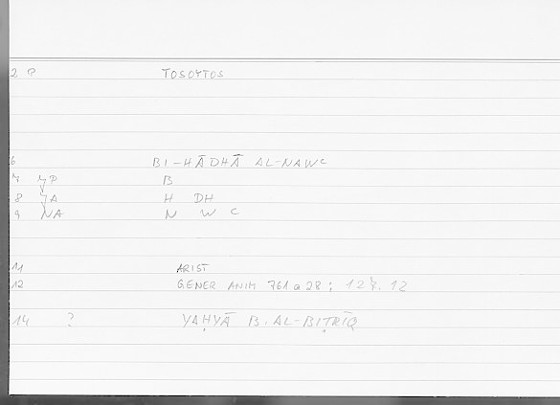 2 P TOSOYTOS
6 BI-HĀDHĀ AL-NAWC
7 B
8 JA H DH
9 NA N W C
11 ARIST
12 GENER ANIM 761 a 28; 127.12
14 ? YAḤYĀ B. AL-BIṬRĪQ